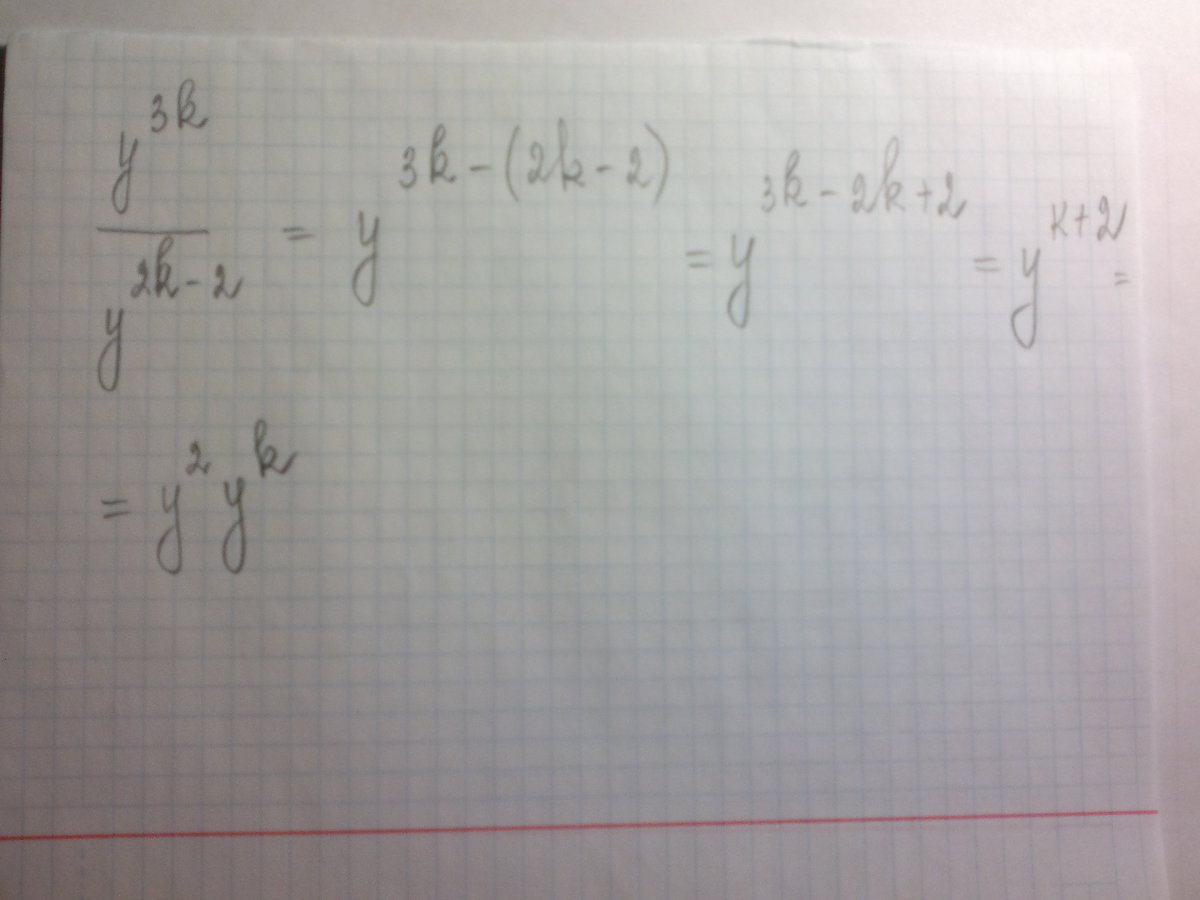 \frac{y^{3k}}{y^{2k-2}} = y^{3k-(2k-2)} = y^{3k-2k+2} = y^{k+2} =
= y^{2} y^{k}